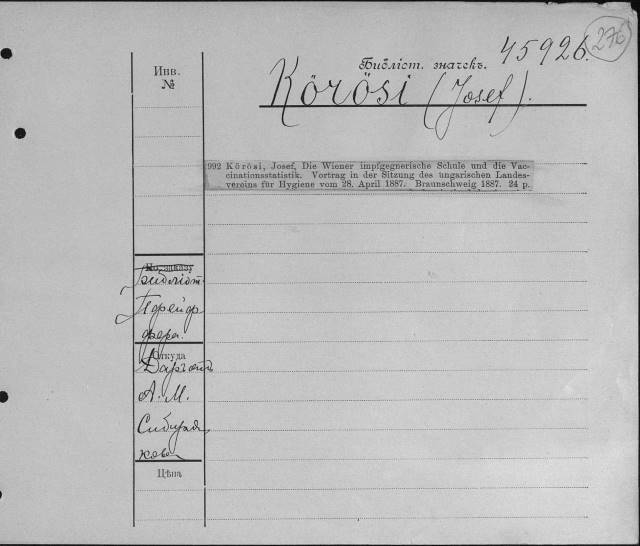 276
45926.
Библіот. значекъ.
Инв.
№
Körösi (Josef).
992 Körösi, Josef, Die Wiener impfgegnerische Schule und die Vac-
cinationsstatistik. Vortrag in der Sitzung des ungarischen Landes-
vereins für Hygiene vom 28. April 1887. Braunschweig 1887. 24 p.
По заказу
Библіот.
Пфейф
фера.
Откуда
Даръ отъ
А. М.
Сибиря
кова
Цѣна